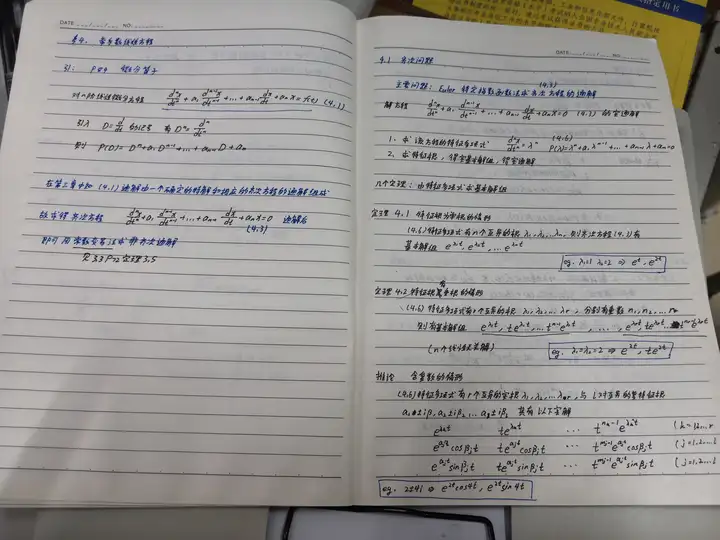 DATE NO.
§4. 常系数线性方程
引: P89 微分算子
对n阶线性微分方程 d^n x/dt^n + a₁ d^(n-1)x/dt^(n-1) + ... + a_(n-1) dx/dt + a_n x = f(t) (4.1)
引入 D = d/dt 的记号 有 D^n = d^n/dt^n
则 P(D) = D^n + a₁ D^(n-1) + ... + a_(n-1) D + a_n
在第三章中知 (4.1)通解由一个确定的特解和相应的齐次方程的通解组成
故求得齐次方程 d^n x/dt^n + a₁ d^(n-1)x/dt^(n-1) + ... + a_(n-1) dx/dt + a_n x = 0 通解后
(4.3)
即可用常数变易法求非齐次通解
见§3.3 P72 定理3.5
DATE NO.
4.1 齐次问题
主要问题: Euler 待定指数函数法求齐次方程的通解
(4.3)
解方程 d^n x/dt^n + a₁ d^(n-1)x/dt^(n-1) + ... + a_(n-1) dx/dt + a_n x = 0 (4.3) 的实通解
1. 求该方程的特征多项式 d^n x/dt^n = λ^n P(λ) = λ^n + a₁λ^(n-1) + ... + a_(n-1)λ + a_n = 0
(4.6)
2. 求特征根, 得实基本解组, 得实通解
几个定理: 由特征多项式求基本解组
定理 4.1 特征根为单根的情形
(4.6)特征多项式有n个互异的根 λ₁, λ₂, ... λ_n, 则齐次方程(4.3)有
基本解组 e^(λ₁t), e^(λ₂t), ... e^(λ_n t)
eg. λ₁=1 λ₂=2 ⇒ e^t, e^(2t)
定理 4.2 特征根有重根的情形
(4.6)特征多项式有r个互异的根 λ₁, λ₂, ... λ_r, 分别有重数 n₁, n₂, ... n_r
则有基本解组 e^(λ₁t), te^(λ₁t), ... t^(n₁-1)e^(λ₁t), ..., e^(λ_r t), te^(λ_r t) ... t^(n_r-1)e^(λ_r t)
(n个线性无关解)
eg. λ₁=λ₂=2 ⇒ e^(2t), te^(2t)
推论 含复数的情形
(4.6)特征多项式有r个互异的实根 λ₁, λ₂, ... λ_r, 与l对互异的复特征根
a₁±iβ₁, a₂±iβ₂ ... a_l±iβ_l 其有以下实解
e^(λ_k t) te^(λ_k t) ... t^(n_k-1)e^(λ_k t) (k=1,2...r
e^(a_j t)cosβ_j t te^(a_j t)cosβ_j t ... t^(m_j-1)e^(a_j t)cosβ_j t (j=1,2...l
e^(a_j t)sinβ_j t te^(a_j t)sinβ_j t ... t^(m_j-1)e^(a_j t)sinβ_j t (j=1,2...l
eg. 2±4i ⇒ e^(2t)cos4t, e^(2t)sin4t